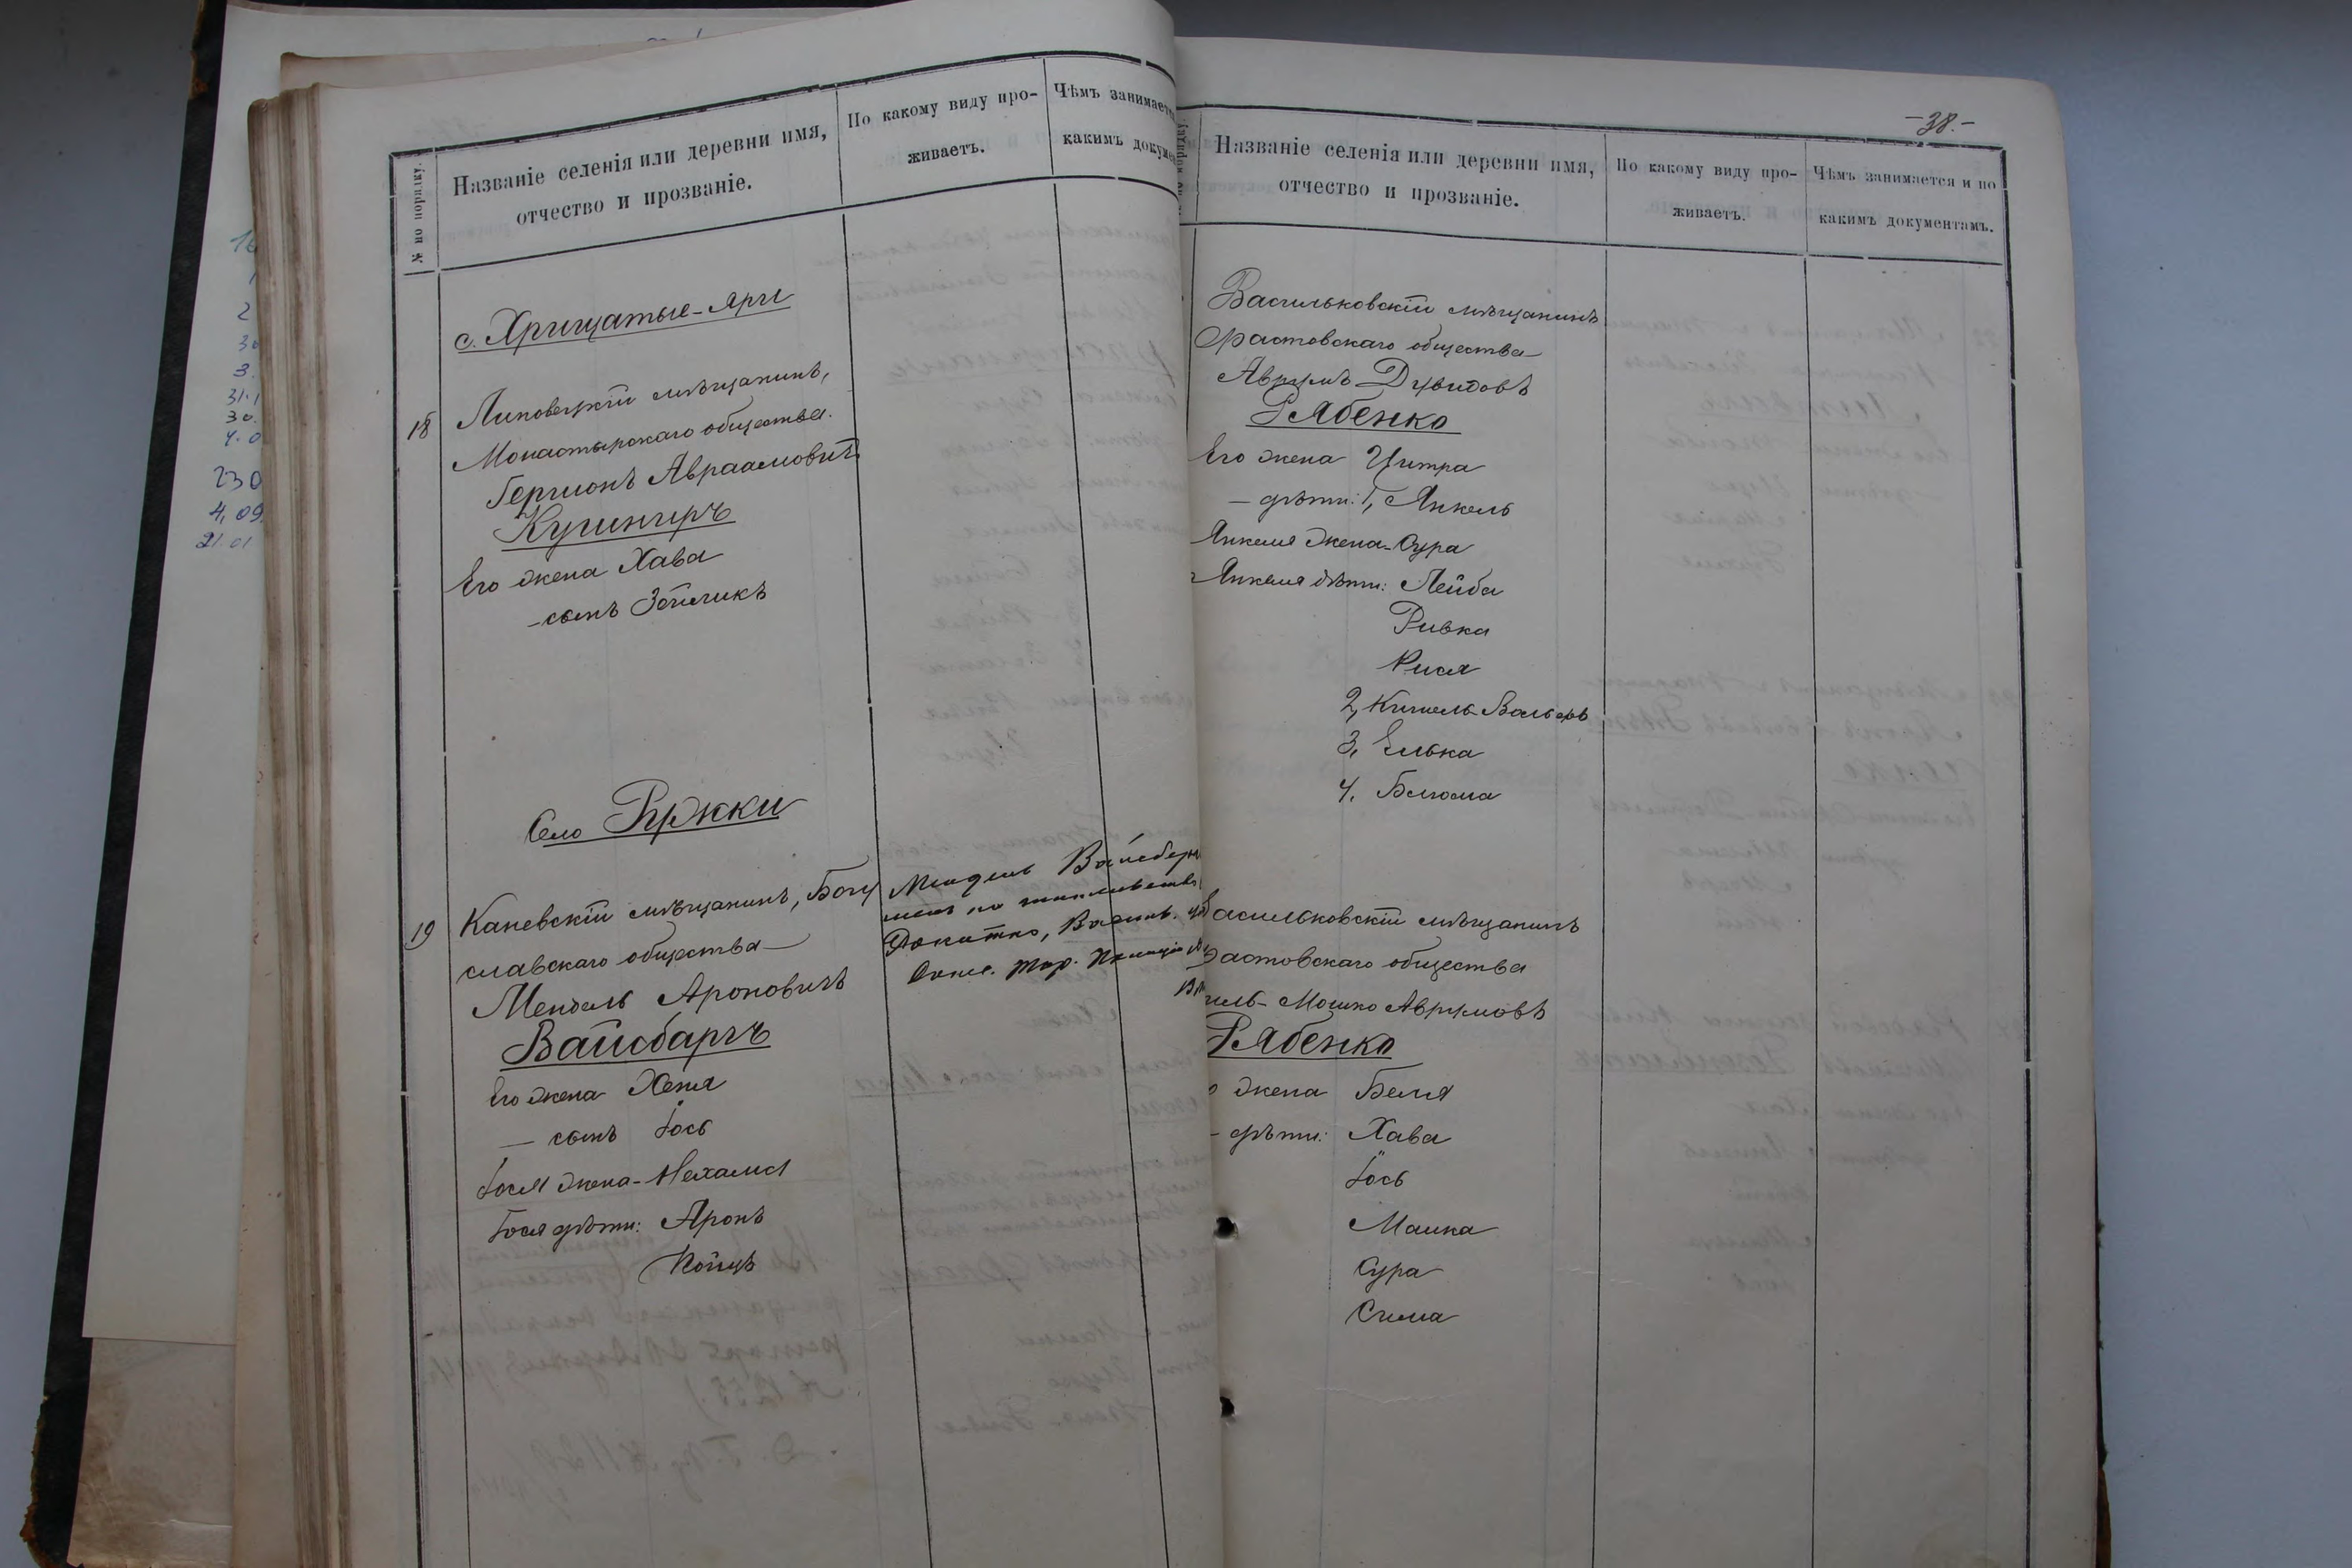 № по порядку.
Названіе селенія или деревни имя,
отчество и прозваніе.
По какому виду про-
живаетъ.
Чѣмъ занимает
какимъ докуме
с. Хрищатые-Яры
18
Липовецкій мѣщанинъ,
Монастырскаго общества.
Гершонъ Авраамовичъ
Кушниръ
Его жена Хава
- сынъ Зейликъ
Село Ряжки
19
Каневскій мѣщанинъ, Богу
славскаго общества
Мендель Ароновичъ
Вайсбаргъ
Его жена Хеня
- сынъ Іось
Іося жена - Нехама
Іося дѣти: Аронъ
Мендель Вайсбер
Рокитно, Васильк.
- 38. -
Названіе селенія или деревни имя,
отчество и прозваніе.
По какому виду про-
живаетъ.
Чѣмъ занимается и по
какимъ документамъ.
Васильковскій мѣщанинъ
Фастовскаго общества
Аврумъ Дувидовъ
Рябенко
Его жена Цитра
- дѣти: 1, Янкель
Янкеля жена - Сура
Янкеля дѣти: Лейба
Ривка
Рися
2, Кисиель-Вольфъ
3, Елька
4. Блюма
асильковскій мѣщанинъ
астовскаго общества
иль-Мошко Аврумовъ
Рябенко
о жена Беля
- дѣти: Хава
Іось
Маика
Сура
Сима
230
4,09
21.01